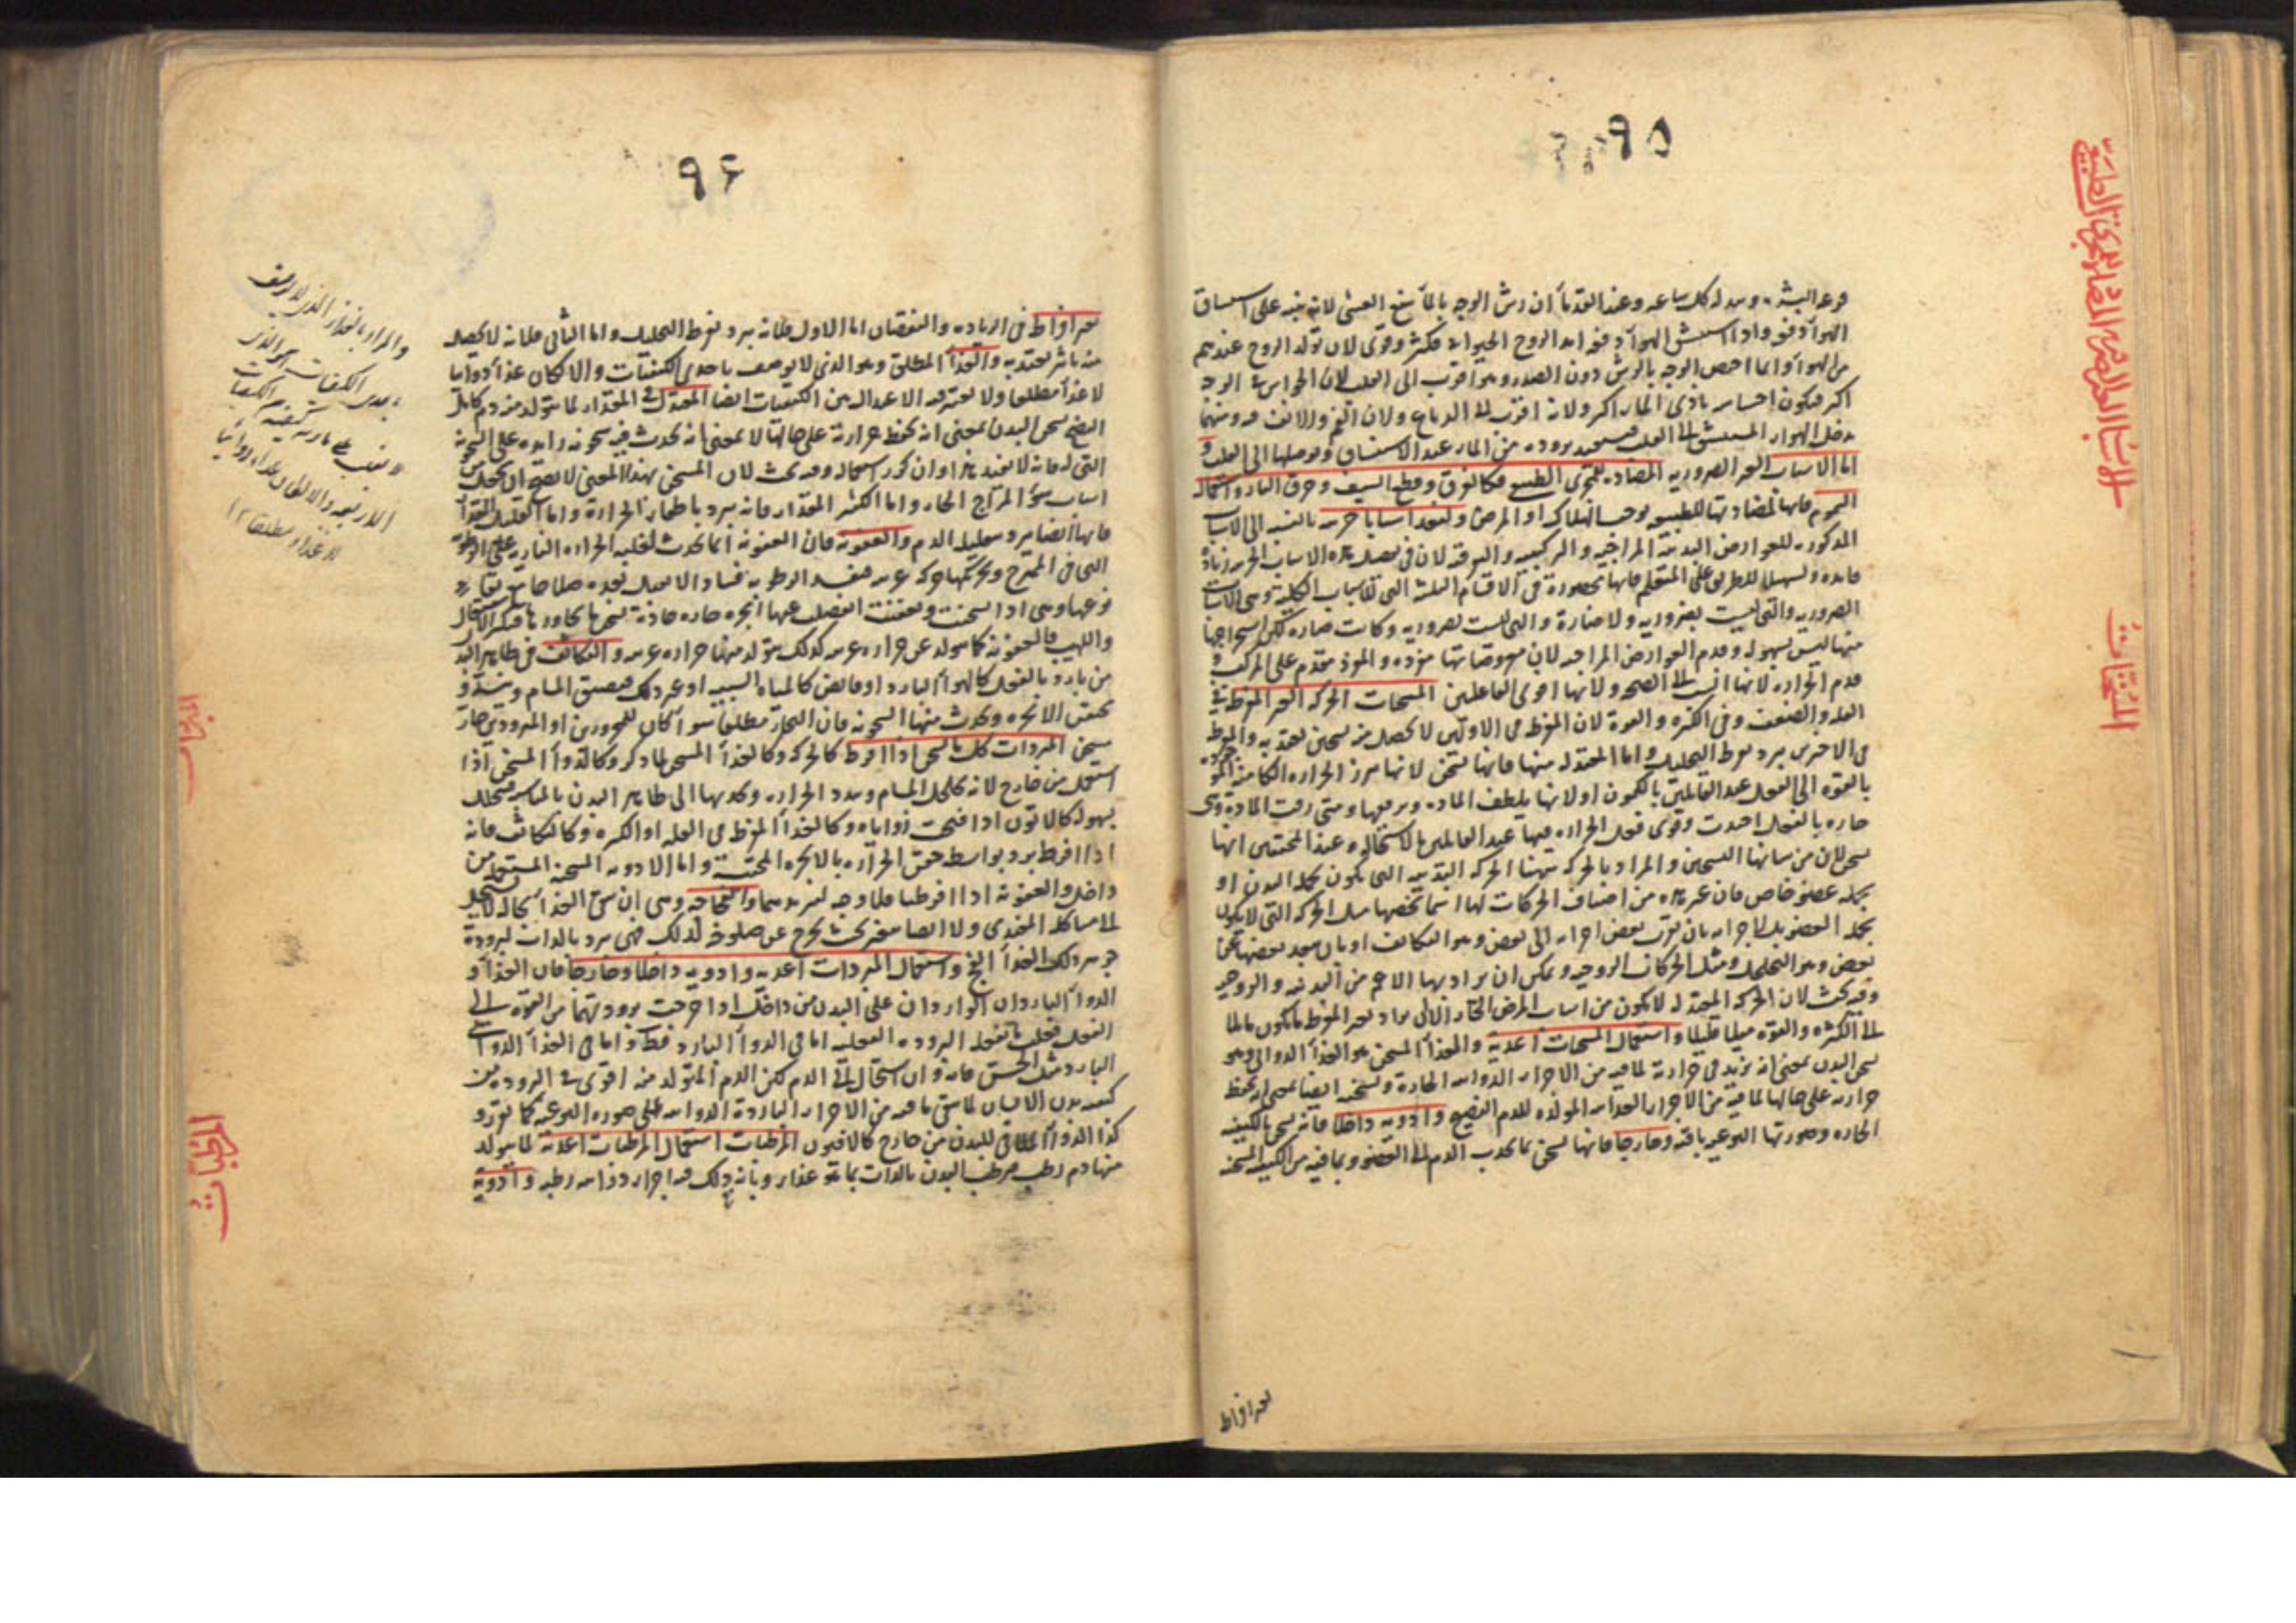 ٩٥
الاسباب الغير الضرورية المضادة للمجرى الطبيعي
فرعه البشرة وسدله كل ساعه وعند القدماء ان رش الوجه بالماء ينفع الغشى لانه ينبه على استنشاق
الهواء دفعه واذا استنشق الهواء دفعه امد الروح الحيوانى فكثر وقوى لان تولد الروح عندهم
من الهواء وانما اخص الوجه بالرش دون الصدر وهو اقرب الى القلب لان الحواس فى الوجه
اكثر فيكون احساسه باذى الماء اكثر ولانه اقرب الى الدماغ ولان الفم والانف فيه ومنهما
يدخل الهواء المستنشق الى القلب فيستفيد بروده من الماء عند الاستنشاق ويوصلها الى القلب و
اما الاسباب الغير الضروريه المضاده للمجرى الطبيعى فكالغرق وقطع السيف وحرق النار واستعمال
السموم فانها لمضادتها للطبيعه يوجب الهلاك او المرض ولنعد اسبابا جزييه بالنسبه الى الاسباب
المذكوره للعوارض البدنية المزاجيه والتركيبيه والتفرقه لان فى تفصيل هذه الاسباب الجزييه زياده
فايده وتسهيلا للطريق على المتعلم فانها محصورة فى الاقسام الثلثه التى للاسباب الكلية وهى الاسباب
الضروريه والتى ليست بضروريه ولا ضارة والتى ليست بضروريه وكانت ضاره لكن استخراجها
منها ليس بسهوله وقدم العوارض المزاجيه لان معروضاتها مفرده والمفرد مقدم على المركب و
قدم الحراره لانها انسب الى الصحه ولانها اقوى الفاعلين المسخنات الحركه الغير المفرطه فى
القله والضعف وفى الكثره والقوة لان المفرطه فى الاولين لا يحصل منه تسخين يعتد به والمفرطه
فى الاخرين يبرد بفرط التحليل واما المعتدله منها فانها تسخن لانها يبرز الحراره الكامنه الموجوده
بالقوه الى الفعل عند القايلين بالكمون او لانها يلطف الماده ويرققها ومتى رقت المادة وهى
حاره بالفعل احتدت وقوى فعل الحراره فيها عند القايلين بالاستحاله وعند المحققين انها
تسخن لان من شانها التسخين والمراد بالحركه ههنا الحركه البدنيه التى يكون بجمله البدن او
بجمله عضو خاص فان غير هذه من اصناف الحركات لها اسما يخصها مثل الحركه التى لا يكون
بجمله العضو بل لاجزايه بان يقرب بعض اجزايه الى بعض وهو التكاثف او بان يبعد بعضها عن
بعض وهو التخلخل ومثل الحركات الروحيه ويمكن ان يراد بها الاعم من البدنيه والروحيه
وفيه بحث لان الحركه المعتدله لا يكون من اسباب المرض الحار الا ان يراد بغير المفرط ما يكون مايلا
الى الكثره والقوه ميلا قليلا واستعمال المسخنات اغذية والغذا المسخن هو الغذا الدوائى وهو
يسخن البدن بمعنى انه يزيد فى حرارته لما فيه من الاجزاء الدواييه الحارة وتسخينه ايضا بمعنى انه يحفظ
حرارته على حالها لما فيه من الاجزاء الغذاييه المولده للدم النضيج وادويه داخلا فانه يسخن بالكيفيه
الحاره وصورتها النوعيه باقيه وخارجا فانها تسخن بما يجذب الدم الى العضو وبما فيه من الكيفيه المسخنه
المسخنات
غير افراط
٩٦
غير افراط فى الزياده والنقصان اما الاول فلانه يبرد بفرط التحليل واما الثانى فلانه لا يحصل
منه تاثير يعتد به والغذا المطلق وهو الذى لا يوصف باحدى الكيفيات والا لكان غذا دوائيا
لا غذا مطلقا ولا يعتبر فيه الاعتدال بين الكيفيات ايضا المعتدل فى المقدار لما يتولد منه دم كامل
النضج يسخن البدن بمعنى انه يحفظ حرارته على حالها لا بمعنى انه يحدث فيه سخونه زايده على السخونه
التى له فانه لا يفيد هذا وان كرر استعماله وفيه بحث لان المسخن بهذا المعنى لا يصح ان يجعل من
اسباب سوء المزاج الحار واما الكثير المقدار فانه يبرد باطفاء الحرارة واما القليل الغذا
فانها ايضا يبرد بتقليل الدم والعفونه فان العفونه انما يحدث لغلبه الحراره الناريه على الرطوبه
التى فى الممتزج وتحركها حركه غريبه فيفسد الرطوبه فسادا لا يعود بعده صلاحها مع بقاء
نوعها وهى اذا سخنت وتعفنت انفصلت عنها ابخره حاره حادة تسخن ما يجاورها
واللهيب فالعفونه كما يتولد عن حراره غريبه كذلك يتولد منها حراره غريبه والتكاثف فى ظاهر البدن
من بارد بالفعل كالهواء البارد او قابض كالمياه الشبيه او غير ذلك فيضيق المسام وينسد و
يحتقن الابخره ويحدث منها السخونه فان البخار مطلقا سواء كان للمحرورين او المبرودين حار
يسخن المبردات كل ما يسخن اذا افرط كالحركه وكالغذا المسخن لما ذكر وكالدواء المسخن اذا
استعمل من خارج لانه يخلخل المسام ويبدد الحراره ويجذبها الى ظاهر البدن بالمناسبه فيتحلل
بسهوله كالاتون اذا فتحت زواياه وكالغذا المفرط فى القله او الكثره وكالتكاثف فانه
اذا افرط برد بواسطه خنق الحراره بالابخره المحتقنه واما الادويه المسخنه المستعمله من
داخل والعفونه اذا افرطتا فلا وجه لتبريدهما والفجاجه وهى ان يبقى الغذا بحاله لا يستحيل
الى مشاكله المغتذى ولا ايضا يتغير بحيث يخرج عن صلوحه لذلك فهى يبرد بالذات لبرودة
جوهر ذلك الغذا الفج واستعمال المبردات اغذيه وادويه داخلا وخارجا فان الغذا و
الدواء الباردان الواردان على البدن من داخل اذا خرجت برودتهما من القوه الى
الفعل فعلت بالفعل البروده الفعليه اما فى الدواء البارد فقط واما فى الغذا الدوائى
البارد مثل الخس فانه وان استحال الى الدم لكن الدم المتولد منه اقوى فى البروده من
كيفيه بدن الانسان لما يبقى ما فيه من الاجزاء الباردة الدواييه على صوره النوعيه كما تقرر و
كذا الدواء الملاقى للبدن من خارج كالافيون المرطبات استعمال المرطبات اغذيه لما يتولد
منها دم رطب فيرطب البدن بالذات بما هو غذاء وبان ذلك فيه اجزاء دواييه رطبه وادويه
والمراد بالغذاء الذى لا يوصف
باحدى الكيفيات هو الذى
لا يغلب على تاثيره كيفيه من الكيفيات
الاربعه والا لكان غذاء دوائيا
لا غذاء مطلقا ١٢
المبردات
المرطبات